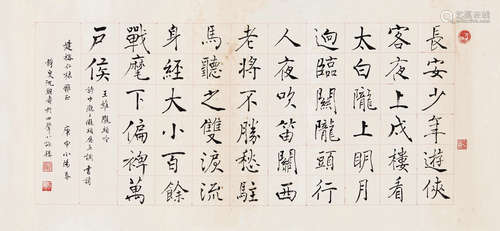 長安少年遊俠
客夜上戍樓看
太白隴上明月
迥臨關隴頭行
人夜吹笛關西
老將不勝愁駐
馬聽之雙淚流
身經大小百餘
戰麾下偏裨萬
戶侯
王維隴頭吟
詩中隴上隴頭應互調 書請
仁棣雅正 庚申小陽春